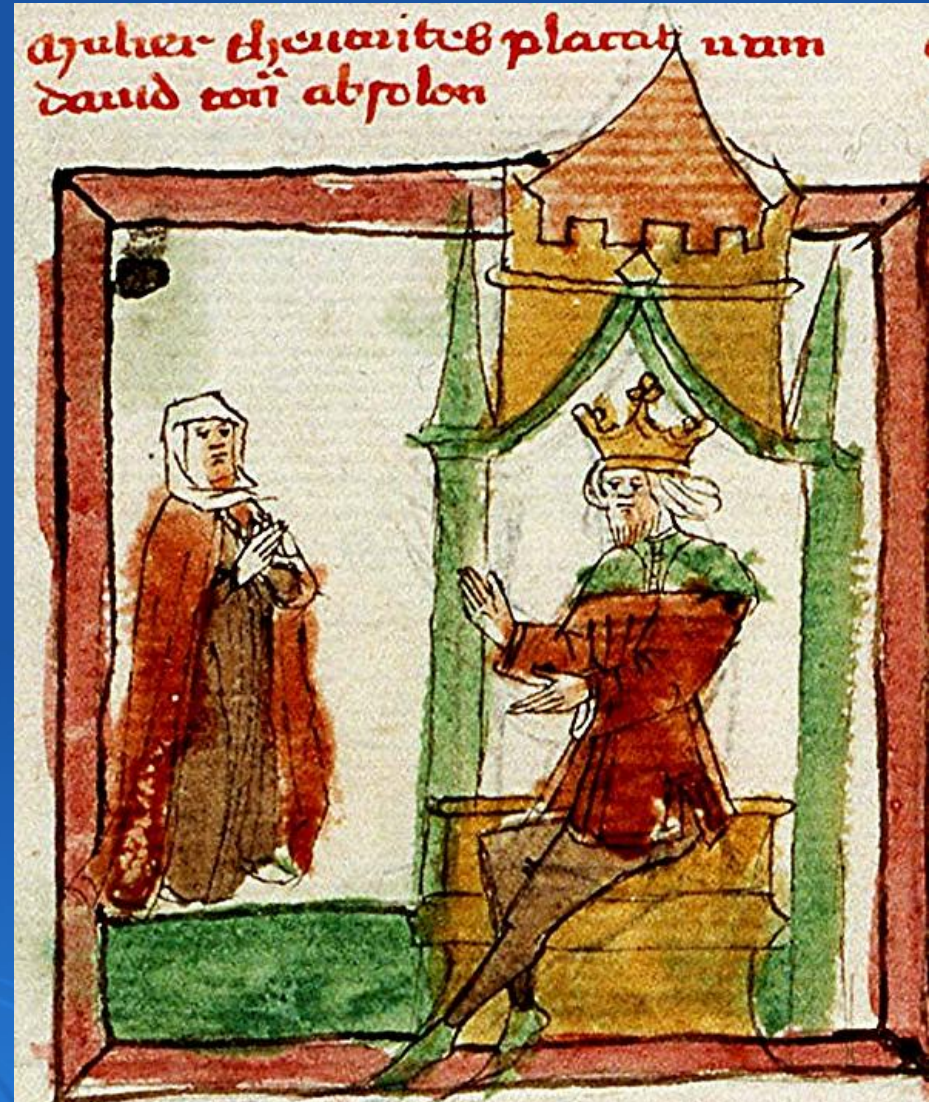 Mulier thecuites placat iram
dauid con̄ absolon